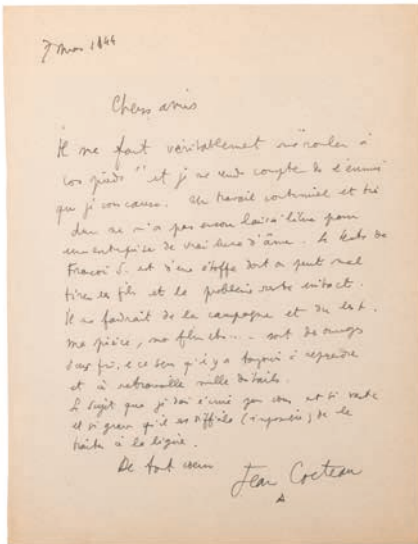 7 mars 1944
Chers amis
Il me faut véritablement m'enrouler à
vos pieds et je me rends compte de l'ennui
que je vous cause. Un travail continuel et très
dur ne m'a pas encore laissé libre pour
une entreprise de vrai luxe d'âme. Le texte de
François S. est d'une étoffe dont on peut mal
tirer les fils et le problème reste intact.
Il me faudrait de la campagne et du
ma pièce, mon film etc... sont des
sans fin, en ce sens qu'il y a toujours à reprendre
et à retravailler mille détails.
Le sujet que je dois écrire pour vous est si vaste
et si grave qu'il est difficile (impossible) de le
traiter à la légère.
De tout cœur
Jean Cocteau